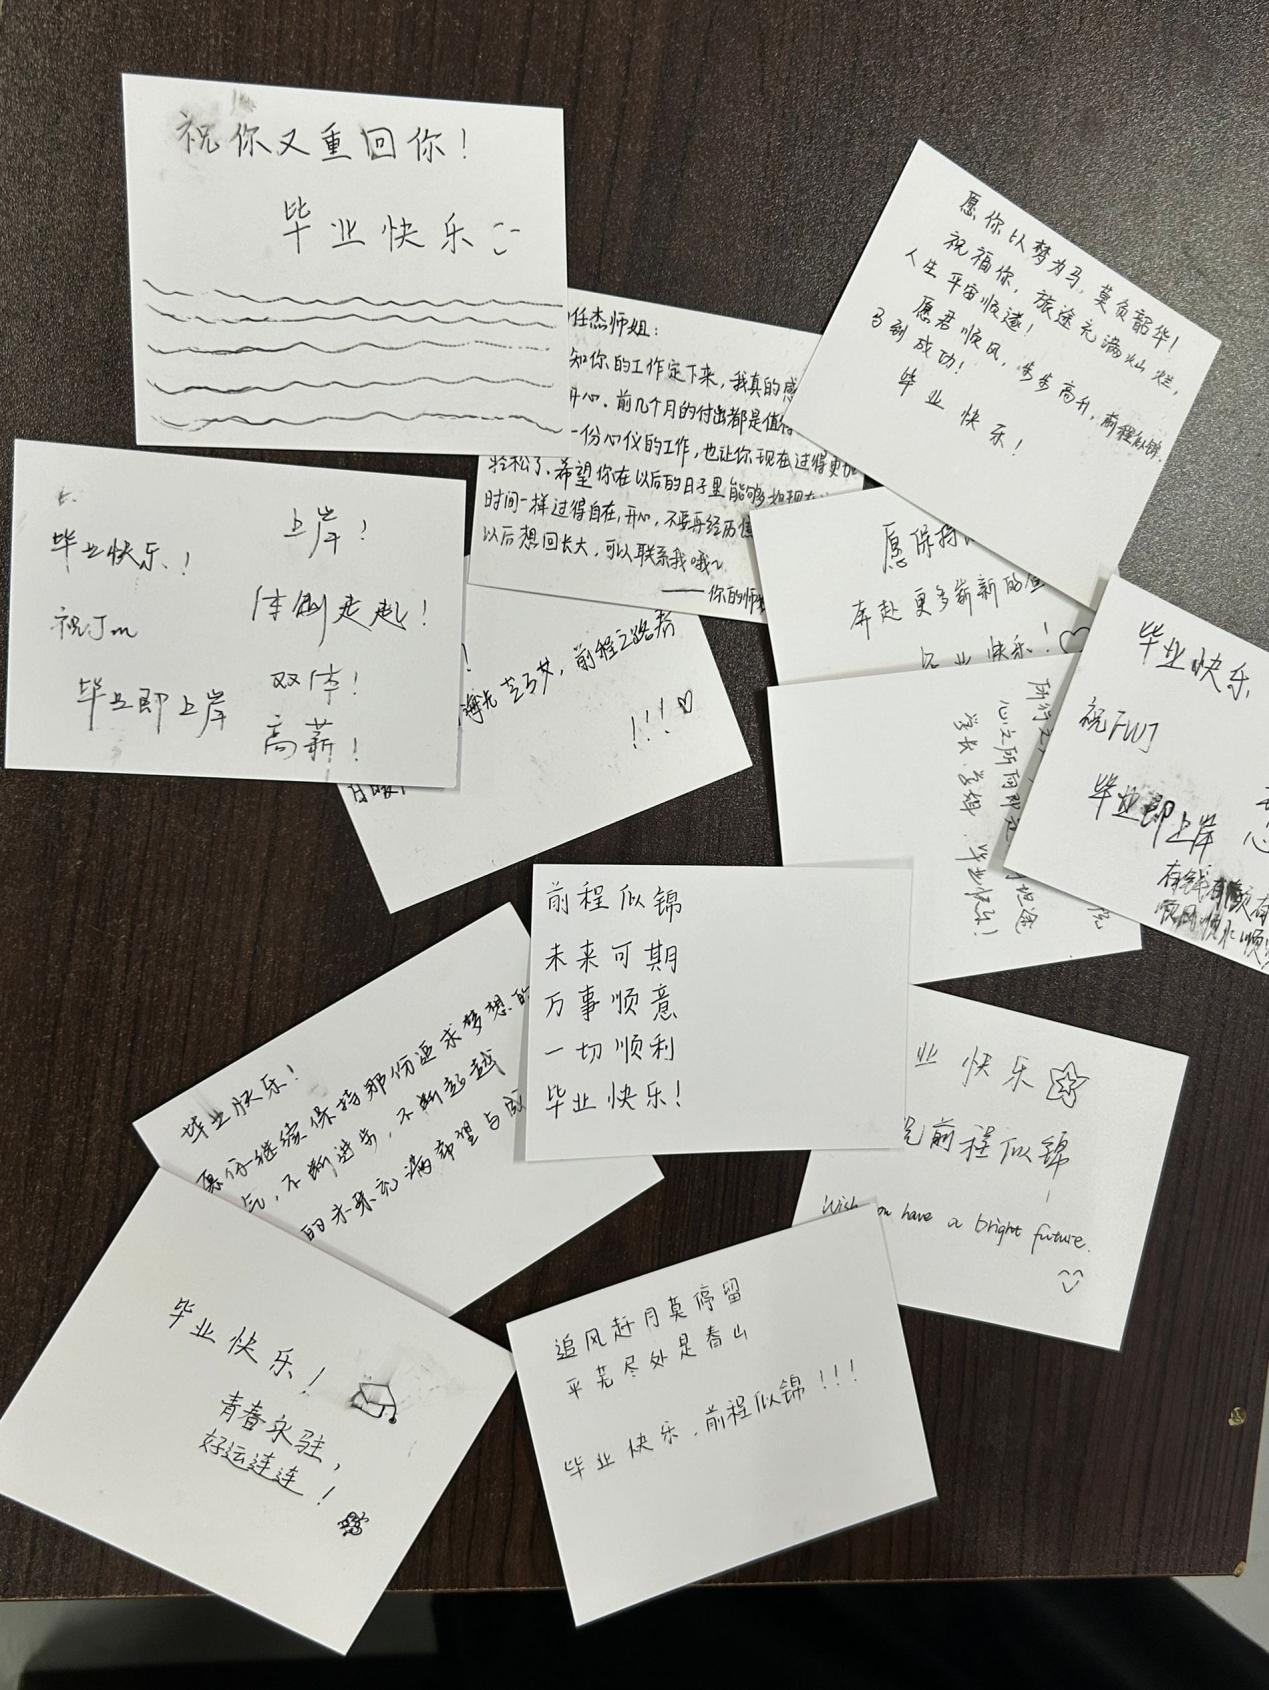 祝你又重回你！
毕业快乐
任杰师姐：
知你的工作定下来，我真的感
开心。前几个月的付出都是值得
一份心仪的工作，也让你现在过得更加
轻松了。希望你在以后的日子里能够如现在
时间一样过得自在，开心，不要再经历
以后想回长大，可以联系我哦～
——你的师
愿你以梦为马，莫负韶华！
祝福你，旅途充满灿烂，
人生平宙顺遂！
愿君顺风，步步高升，前程似锦，
马到成功！
毕业快乐！
毕业快乐！
祝Jm
毕业即上岸
上岸！
体制走起！
双休！
高薪！
前程之路
！！！
愿你
奔赴更多崭新的
业快乐！
所行之
心之所向即
坦途
学长、学姐，毕业快乐！
毕业快乐
祝FWJ
毕业即上岸
有钱有颜有
顺
前程似锦
未来可期
万事顺意
一切顺利
毕业快乐！
毕业快乐！
愿你继续保持那份追求梦想的
气，不断进步，不断超越
的未来充满希望与
业快乐
前程似锦
Wish you have a bright future.
毕业快乐！
青春永驻，
好运连连！
追风赶月莫停留
平芜尽处是春山
毕业快乐，前程似锦！！！